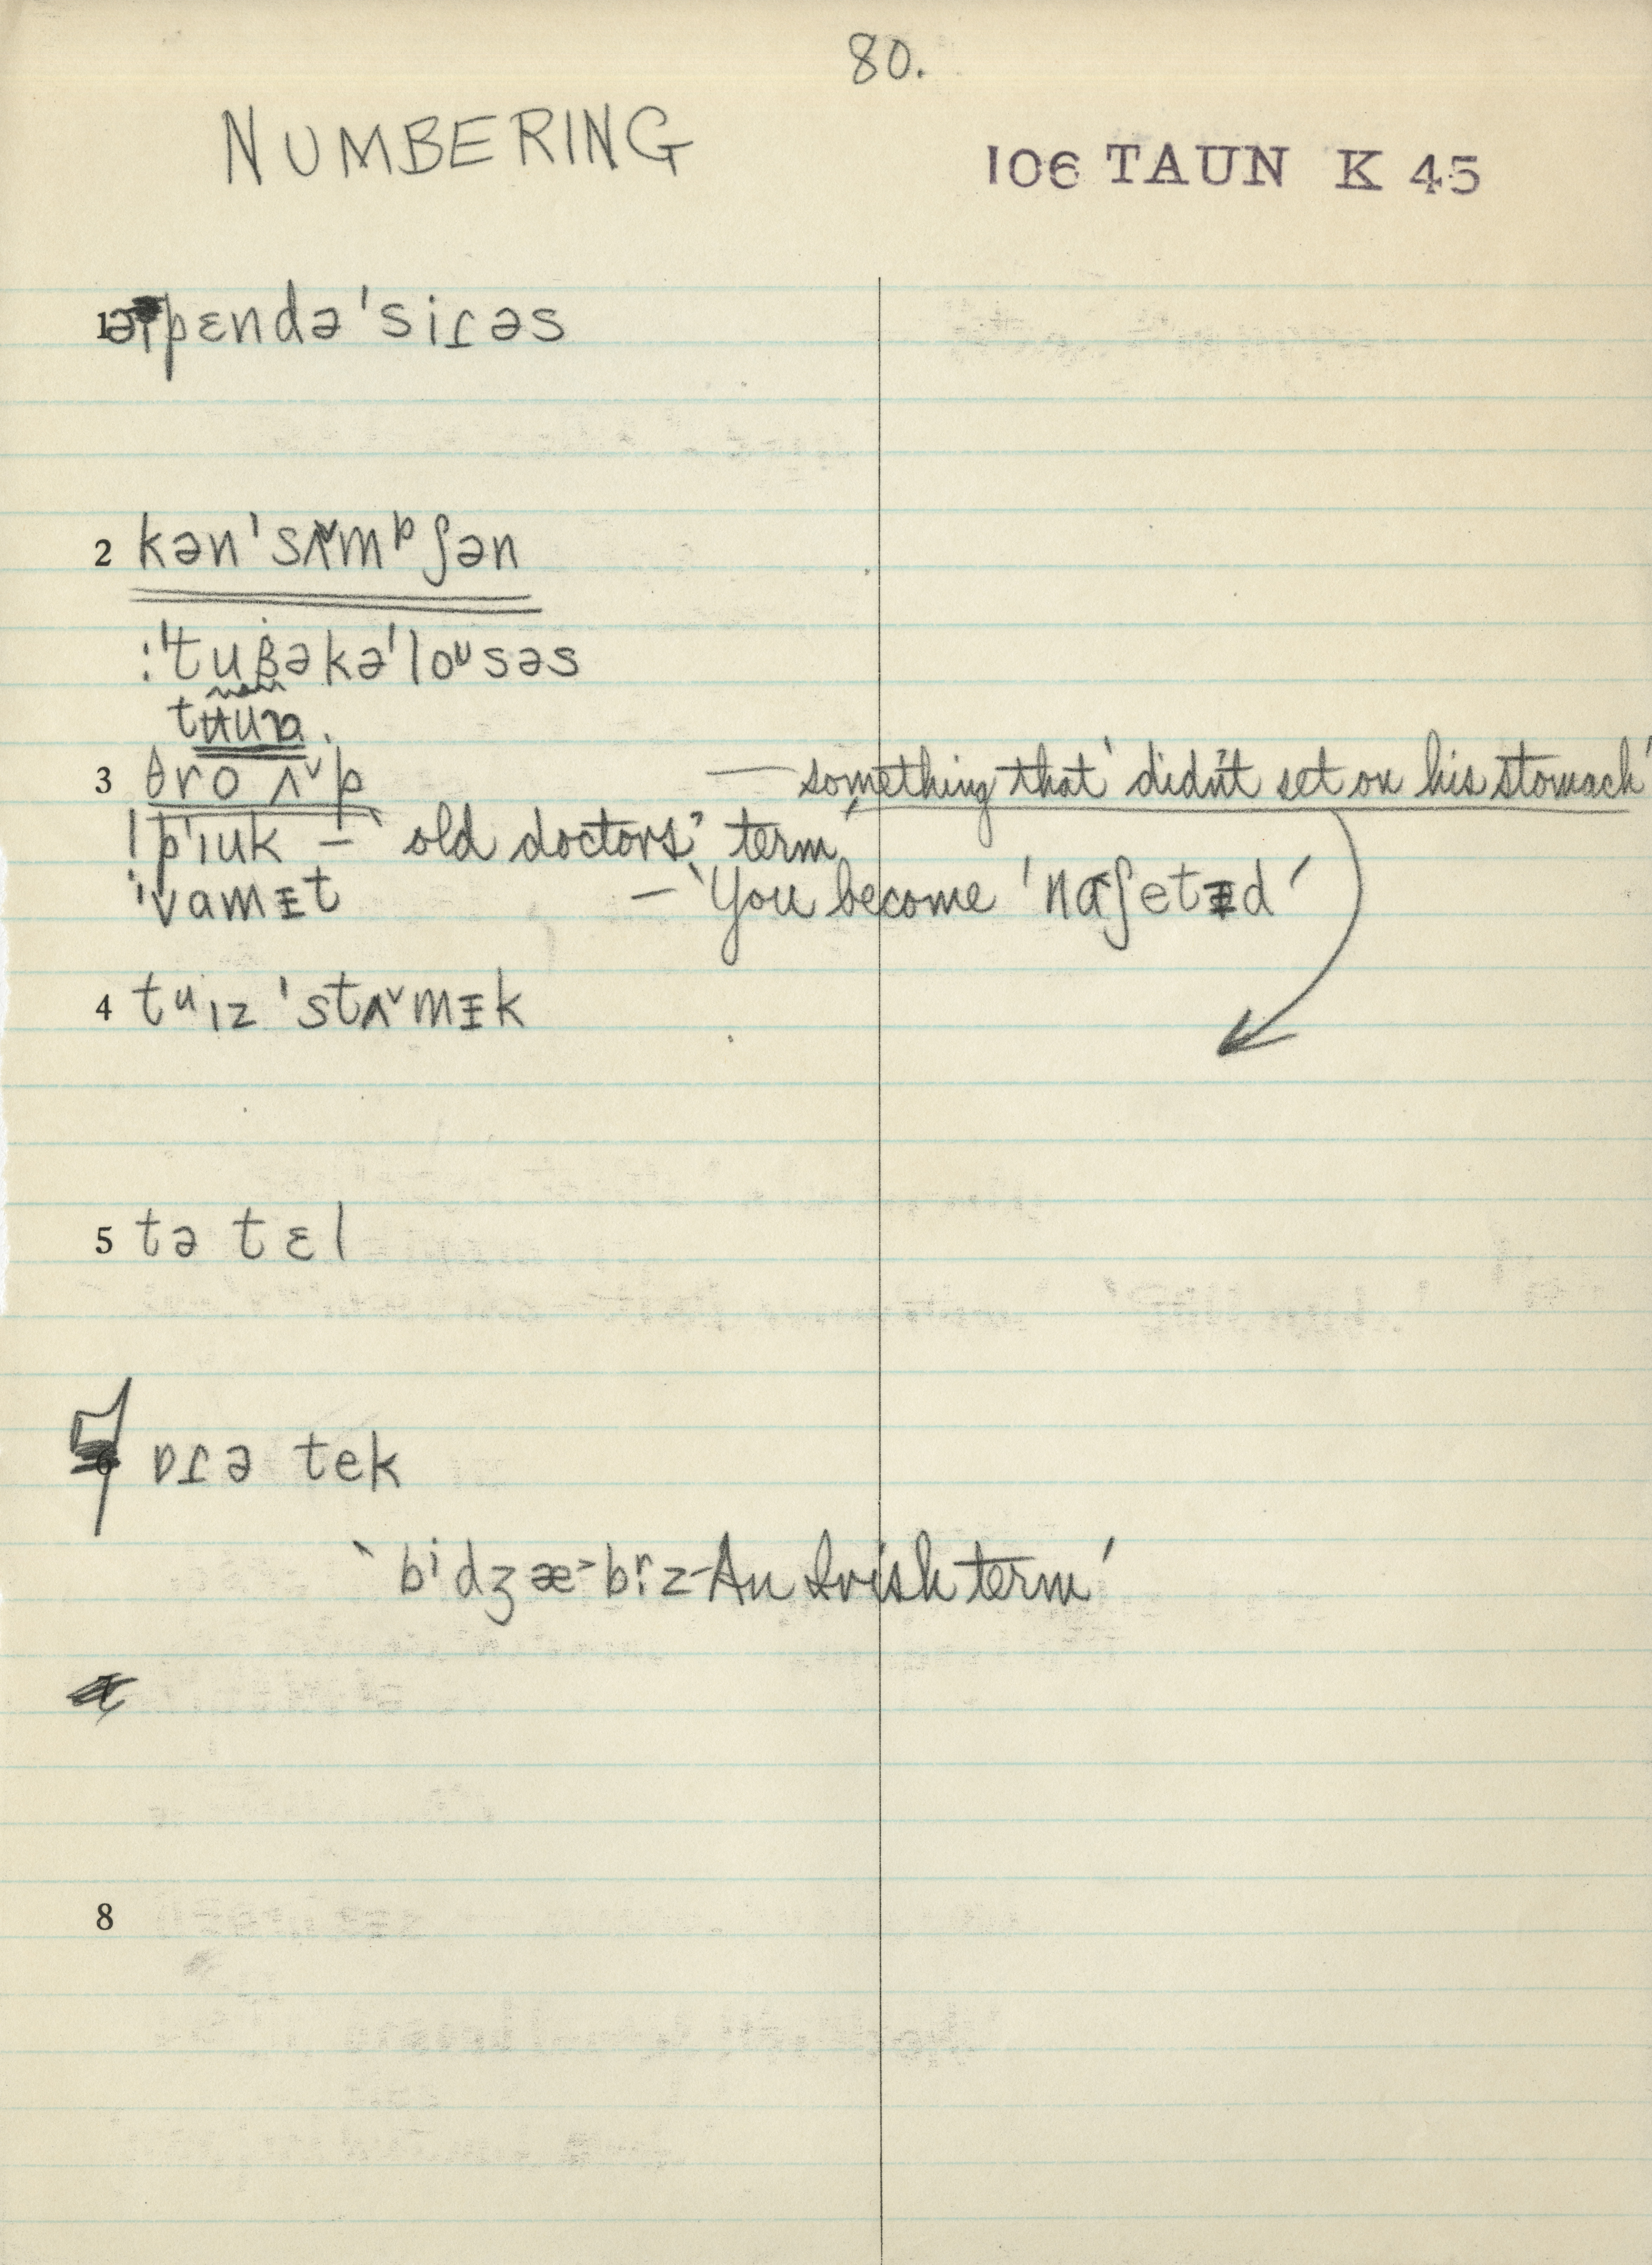 80.
NUMBERING
106 TAUN K 45
1 pɛndə'siɾəs
2 kən'sʌᵛmᵖʃən
:'tuḅəkə'loᵘsəs
3 θro ʌᵛp — something that 'didn't set on his stomach'
!p'ɪuk – 'old doctors' term'
'vamɪt – 'You become 'naʃetɪd'
4 tᵘɪz 'stʌᵛmɪk
5 tə tɛl
ɒɾə tek
'bⁱdʒæ>br̩z-An Irish term'
8